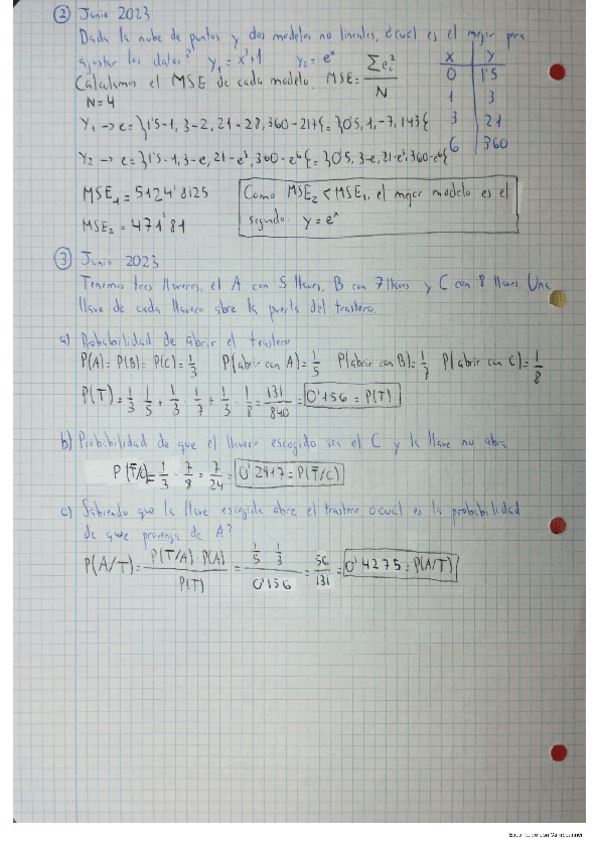 ② Junio 2023
Dada la nube de puntos y dos modelos no lineales, ¿cual es el mejor para
ajustar los datos? y₁ = x³+1 y₂ = eˣ
Calculamos el MSE de cada modelo. MSE = Σeᵢ² / N
N = 4
X Y
0 1'5
1 3
3 21
6 360
Y₁ → e = }1'5-1, 3-2, 21-28, 360-217{ = }0'5, 1, -7, 143{
Y₂ → e = }1'5-1, 3-e, 21-e³, 360-e⁶{ = }0'5, 3-e, 21-e³, 360-e⁶{
MSE₁ = 5124'8125
MSE₂ = 471'81
Como MSE₂ < MSE₁, el mejor modelo es el
segundo. y = eˣ
③ Junio 2023
Tenemos tres llaveros, el A con 5 llaves, B con 7 llaves y C con 8 llaves. Una
llave de cada llavero abre la puerta del trastero.
a) Probabilidad de abrir el trastero
P(A) = P(B) = P(C) = 1/3 P(abrir con A) = 1/5 P(abrir con B) = 1/7 P(abrir con C) = 1/8
P(T) = 1/3 · 1/5 + 1/3 · 1/7 + 1/3 · 1/8 = 131/840 = 0'156 = P(T)
b) Probabilidad de que el llavero escogido sea el C y la llave no abra
P(T̄/C) = 1/3 · 7/8 = 7/24 = 0'2917 = P(T̄/C)
c) Sabiendo que la llave escogida abre el trastero, ¿cual es la probabilidad
de que provenga de A?
P(A/T) = P(T/A) · P(A) / P(T) = 1/5 · 1/3 / 0'156 = 56/131 = 0'4275 = P(A/T)